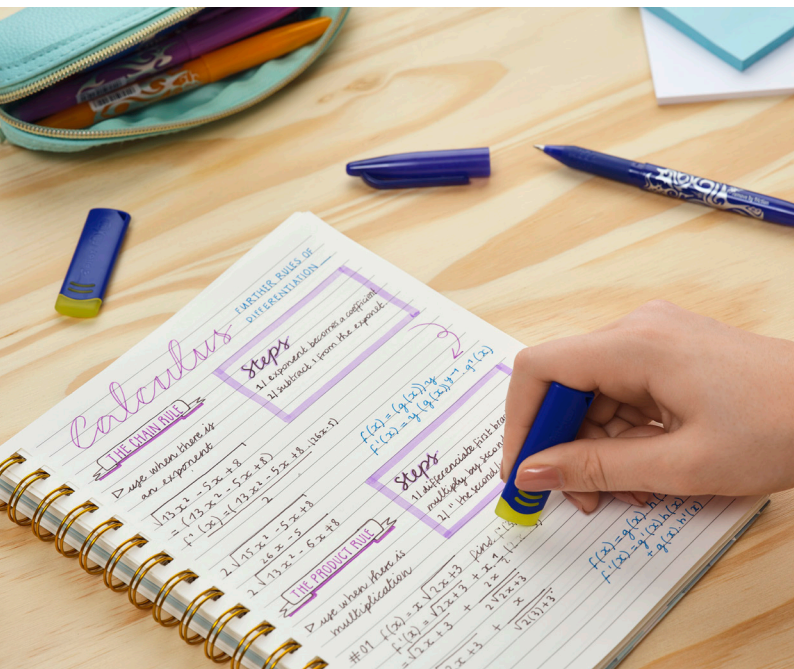 Calculus
FURTHER RULES OF
DIFFERENTIATION
Steps
1/ exponent becomes a coefficient
2/ subtract 1 from the exponet
THE CHAIN RULE
▷ use when there is
an exponent
√13x² - 5x + 8
= (13x² - 5x + 8)
f'(x) = (13x² - 5x + 8
2
2√15x² - 5x + 8
26x - 5
2√13x² - 5x + 8
f(x) = (g(x))
Steps
1/ differenciate first
multiply by
2/ " the second
THE PRODUCT RULE
▷ use when there is
multiplication
#01 f(x) = x√2x+3 find
f'(x) = √2x+3 + x
= √2x+3 + 2x
2√2x+3
f(x) = g(x)
f'(x) = g'(x)h(x)
+ g(x)h'(x)